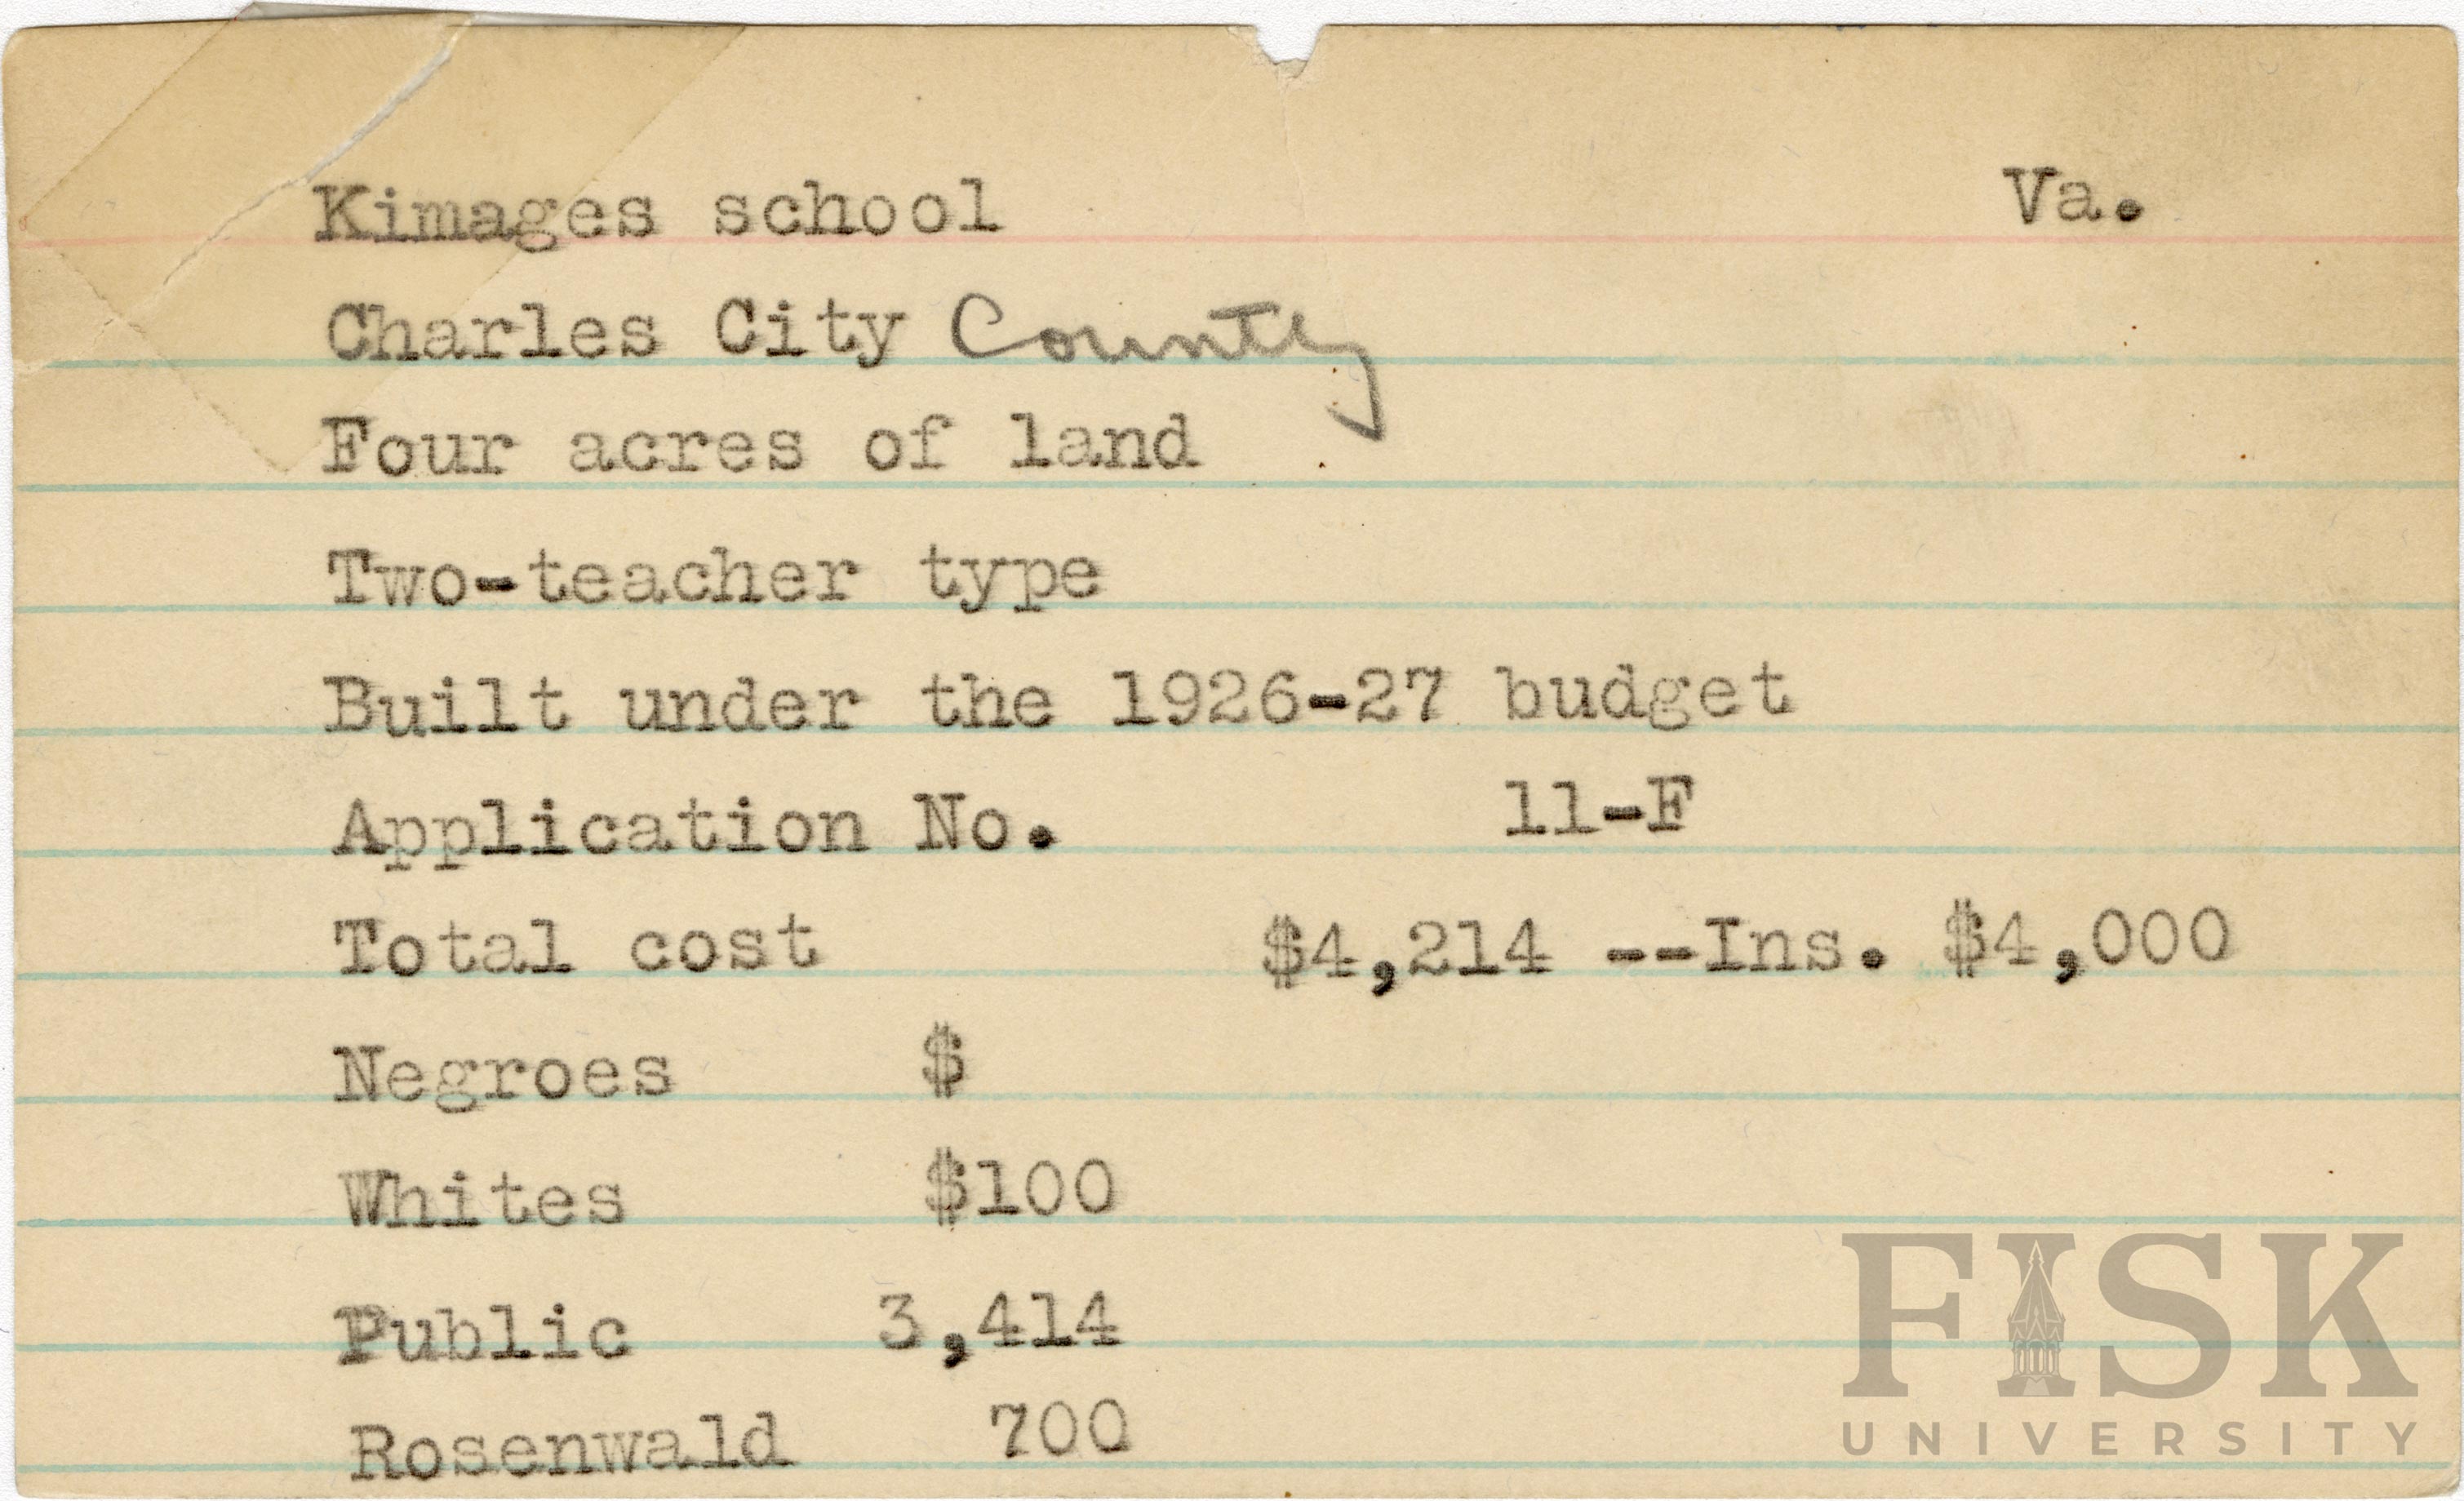 Kimages school Va.
Charles City County
Four acres of land
Two-teacher type
Built under the 1926-27 budget
Application No. 11-F
Total cost $4,214 --Ins. $4,000
Negroes $
Whites $100
Public 3,414
Rosenwald 700
FISK
UNIVERSITY